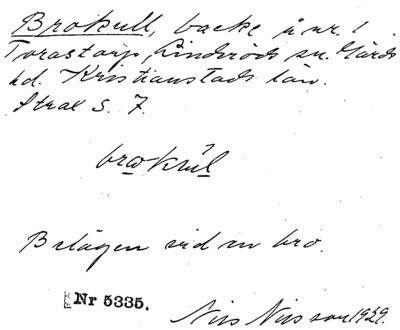 Brokull, backe å nr. 1
Torastorp, Linderöds sn. Gärds
hd. Kristianstads län.
Strax s. 7.
brωkul
Belägen vid en bro.
Nr 5335.
Nils Nilsson 1929.